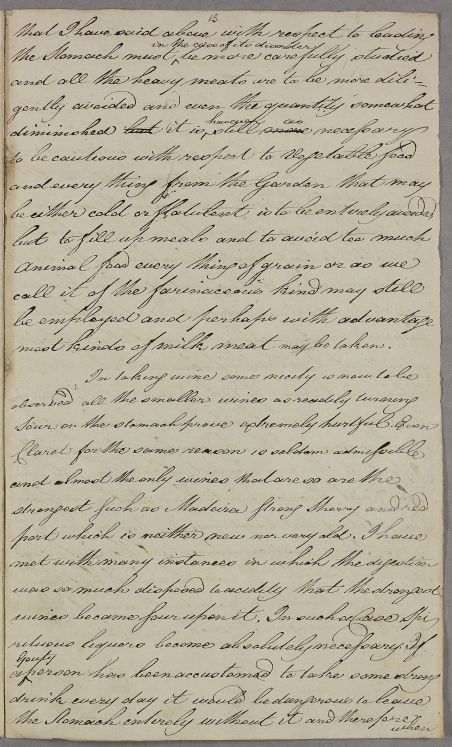 13
that I have said above with respect to loading
in the case of its disorders
the Stomach must be more carefully studied
and all the heavy meats are to be more dili-
gently avoided and even the quantity somewhat
however as
diminished but it is still more necessary
to be cautious with respect to Vegetable food
and every thing from the Garden that may
be either cold or flatulent is to be entirely avoided
but to fill up meals and to avoid too much
Animal food every thing of grain or as we
call it of the farinaceous kind may still
be employed and perhaps with advantage
most kinds of milk meat may be taken.
In taking wine some nicety is now to be
observed all the smaller wines as readily turning
Sour on the stomach prove extremely hurtful. Even
Claret for the same reason is seldom admissible
and almost the only wines that are so are the
strongest such as Madeira strong Sherry and red
port which is neither new nor very old. I have
met with many instances in which the digestion
was so much disposed to acidity that the strongest
wines became sour upon it. In such a Case Spi
rituous liquors become absolutely necessary. If
Gouty
a person has been accustomed to take some strong
drink every day it would be dangerous to leave
the Stomach entirely without it and therefore
when